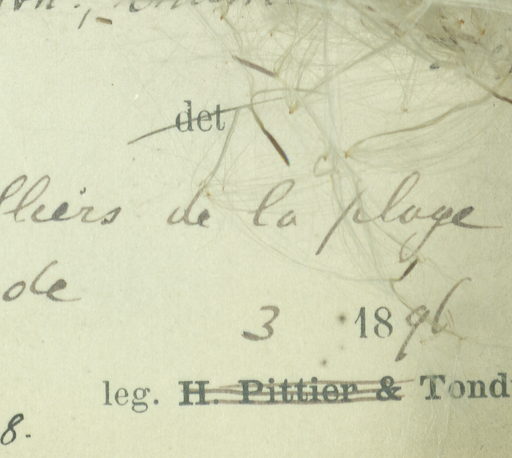 det
lliers de la plage
de
3 1896
leg. H. Pittier & Tond
8.